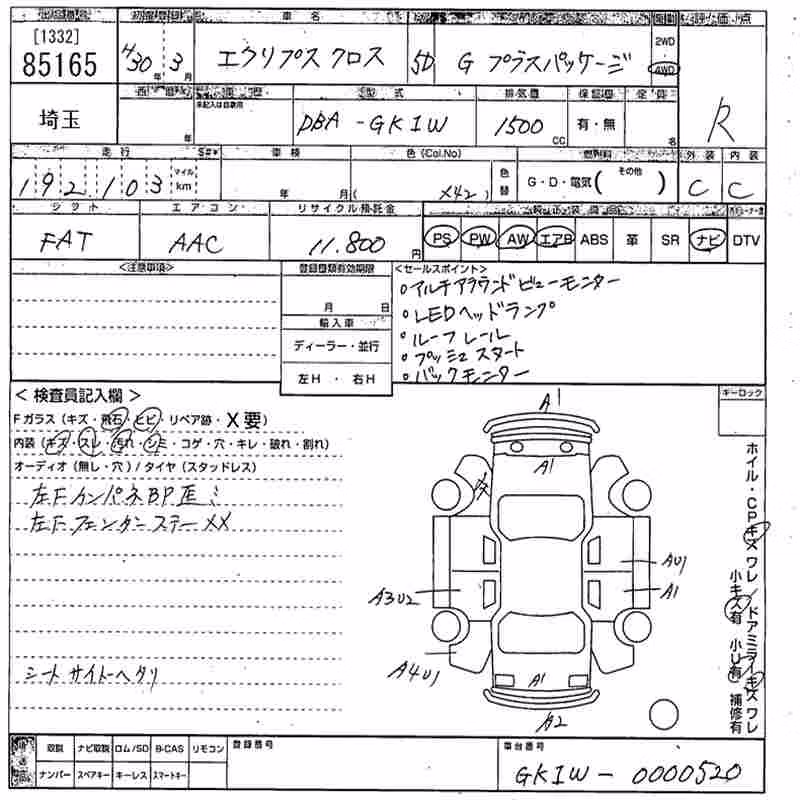 [1332]
85165
埼玉
車名
H30年3月
エクリプス クロス
5D
G プラスパッケージ
2WD
4WD
評価点
R
型式
未記入は自家用
年
DBA - GK1W
排気量
1500 cc
保証書
有・無
定員
名
走行
192,103
マイル
km
車検
年 月
色(Col.No)
( X42 )
色替
燃料
G・D・電気( その他 )
外装
内装
C
C
シフト
FAT
エアコン
AAC
リサイクル預託金
11.800円
PS
PW
AW
エアB
ABS
革
SR
ナビ
DTV
<注意事項>
登録書類有効期限
月 日
輸入車
ディーラー・並行
左H ・ 右H
<セールスポイント>
○マルチアラウンドビューモニター
○LEDヘッドランプ
○ルーフレール
○プッシュスタート
○バックモニター
< 検査員記入欄 >
Fガラス(キズ・飛石・ヒビ・リペア跡・X要)
内装(キズ・スレ・汚れ・シミ・コゲ・穴・キレ・破れ・割れ)
オーディオ(無し・穴)/タイヤ(スタッドレス)
左FインパネBP歪ミ
左Fフェンダーステー XX
シートサイドヘタリ
キーロック
A1
A1
X
AU1
A1
A3U2
A4U1
A1
A2
ホイル・CPキズ ワレ / ドアミラーキズ ワレ
小キズ有 小U有 補修有
取説
ナビ取説
ロム/SD
B-CAS
リモコン
ナンバー
スペアキー
キーレス
スマートキー
登録番号
車台番号
GK1W - 0000520